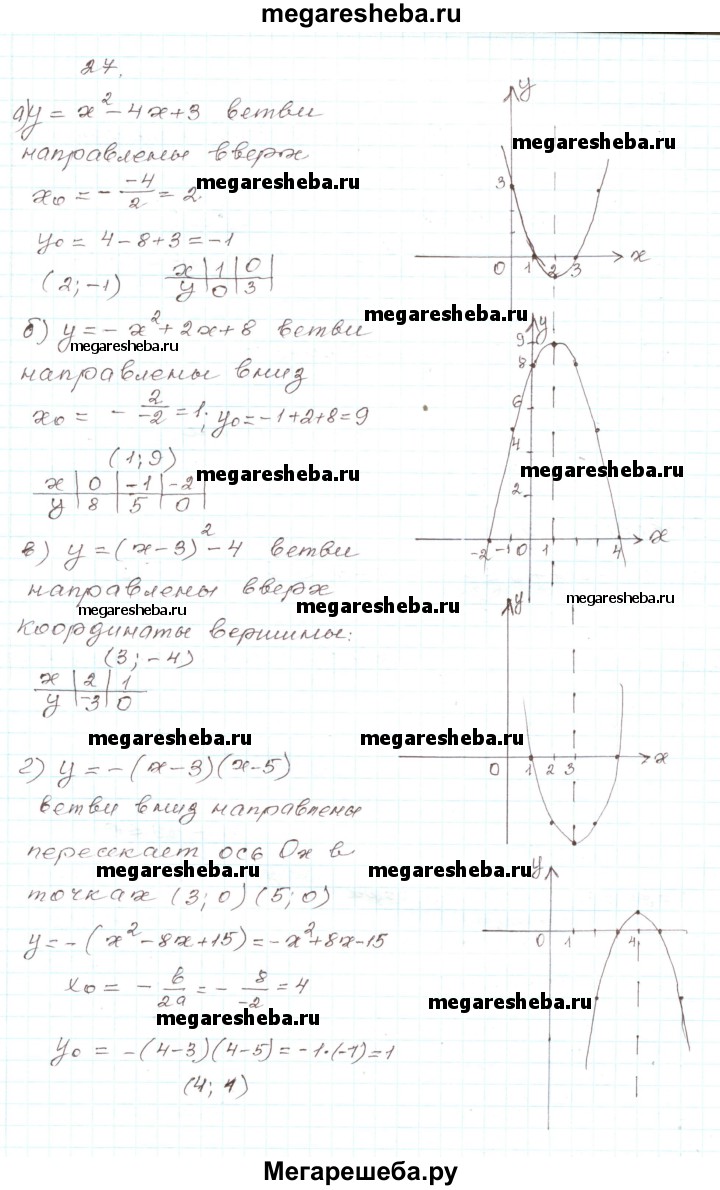 megaresheba.ru
27.
а) y = x² - 4x + 3 ветви
направлены вверх
x₀ = - -4/2 = 2
megaresheba.ru
y₀ = 4 - 8 + 3 = -1
(2; -1)
x | 1 | 0
y | 0 | 3
y
megaresheba.ru
3
0 1 2 3 x
б) y = - x² + 2x + 8 ветви
megaresheba.ru
megaresheba.ru
направлены вниз
x₀ = - 2/-2 = 1; y₀ = -1 + 2 + 8 = 9
(1; 9)
megaresheba.ru
x | 0 | -1 | -2
y | 8 | 5 | 0
y
9
8
6
4
megaresheba.ru
2
-2 -1 0 1 4 x
в) y = (x - 3)² - 4 ветви
направлены вверх
megaresheba.ru
megaresheba.ru
megaresheba.ru
координаты вершины:
(3; -4)
x | 2 | 1
y | -3 | 0
y
megaresheba.ru
megaresheba.ru
0 1 2 3 x
г) y = - (x - 3)(x - 5)
ветви вниз направлены
пересекает ось Ox в
megaresheba.ru
megaresheba.ru
точках (3; 0) (5; 0)
y = - (x² - 8x + 15) = - x² + 8x - 15
x₀ = - b/2a = - 8/-2 = 4
megaresheba.ru
megaresheba.ru
y₀ = - (4 - 3)(4 - 5) = - 1 · (-1) = 1
(4; 1)
y
0 1 4 x
Мегарешеба.ру